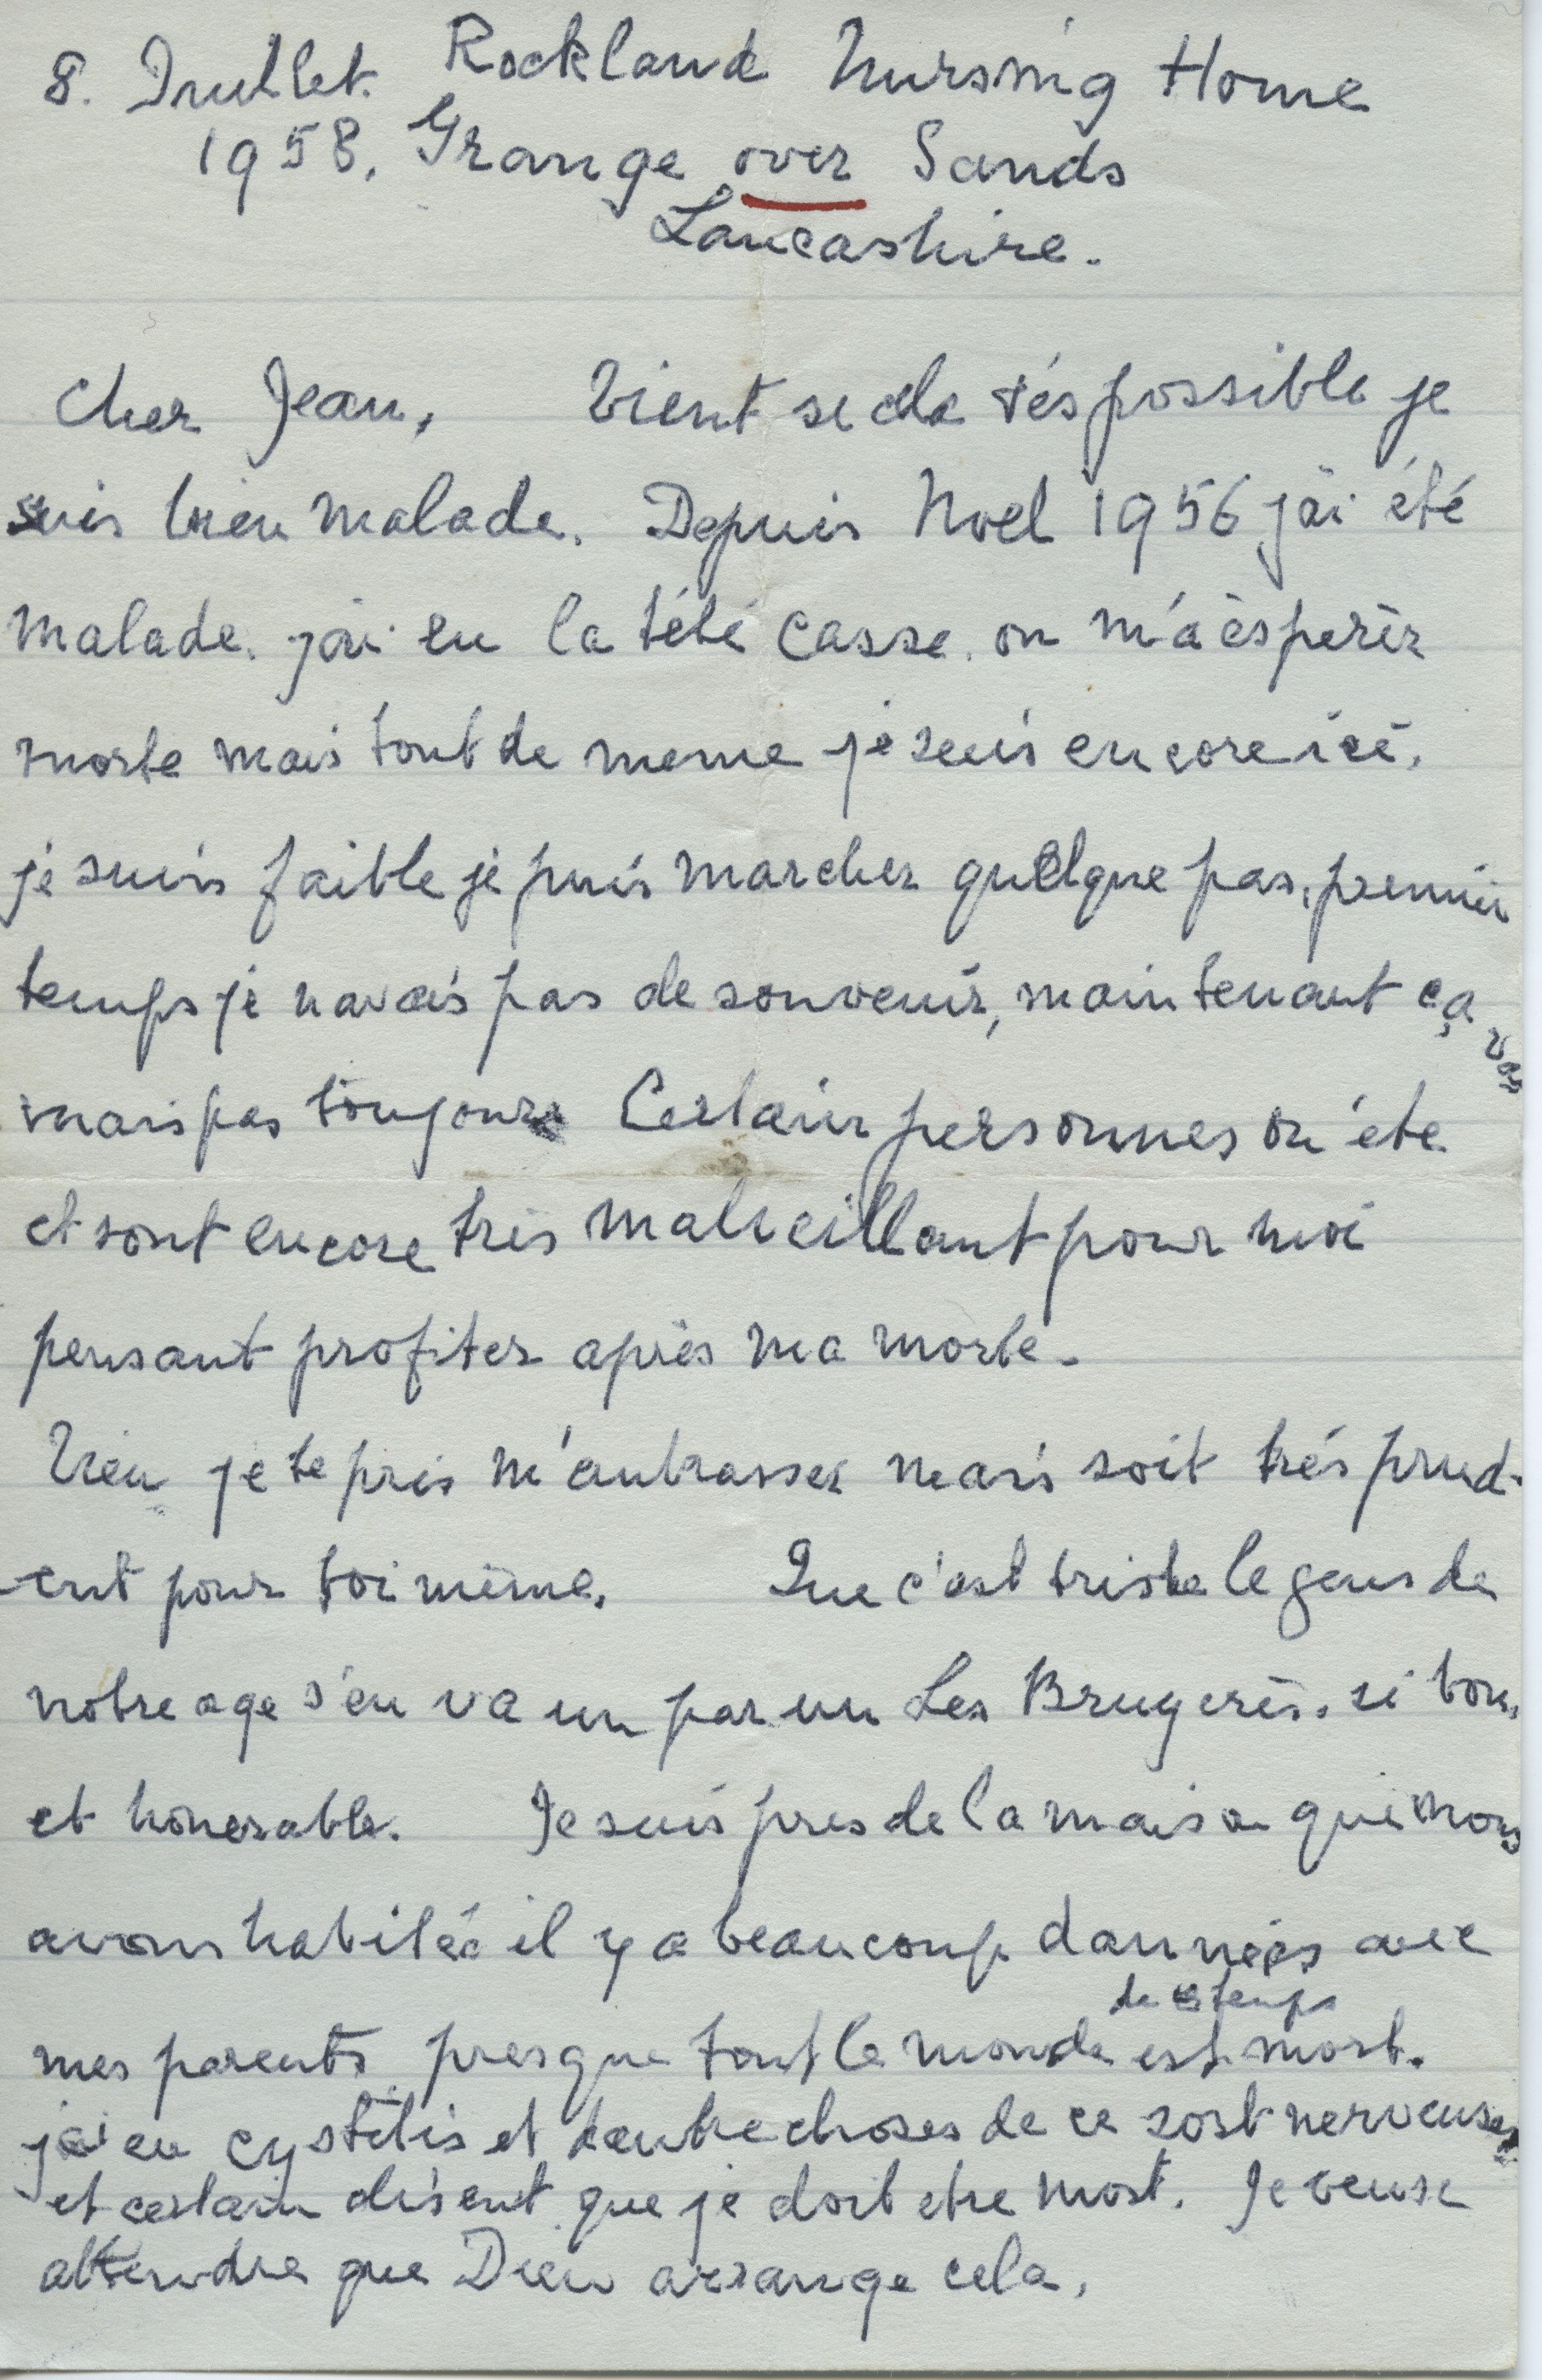 8. Juillet. Rockland Nursing Home
1958. Grange over Sands
Lancashire.
Cher Jean, Vient se cela t'és possible je
suis bien malade. Depuis Noel 1956 j'ai été
malade. j'ai eu la tété casse. on m'a èsperèr
morte mais tout de meme je suis encore ici.
je suis faible je puis marcher quelque pas, premier
temps je navais pas de souvenir, maintenant ça vas
mais pas toujours Certain personnes on éte
et sont encore très malveillant pour moi
pensant profiter après ma morte.
Vien je te pris m'anbrasser mais soit trés prud-
-ent pour toi même. Que c'est triste le gens de
notre age s'en va un par un Les Brugerès. si bon,
et honerable. Je suis pres de la maison que nous
avons habitéé il y a beaucoup dannéés avec
mes parents presque tout le monde de ce temps est mort.
j'ai eu cystitis et dautre choses de ce sort nerveuses
et certain disent que je doit etre mort. Je veuse
attendre que Dieu arrange cela.